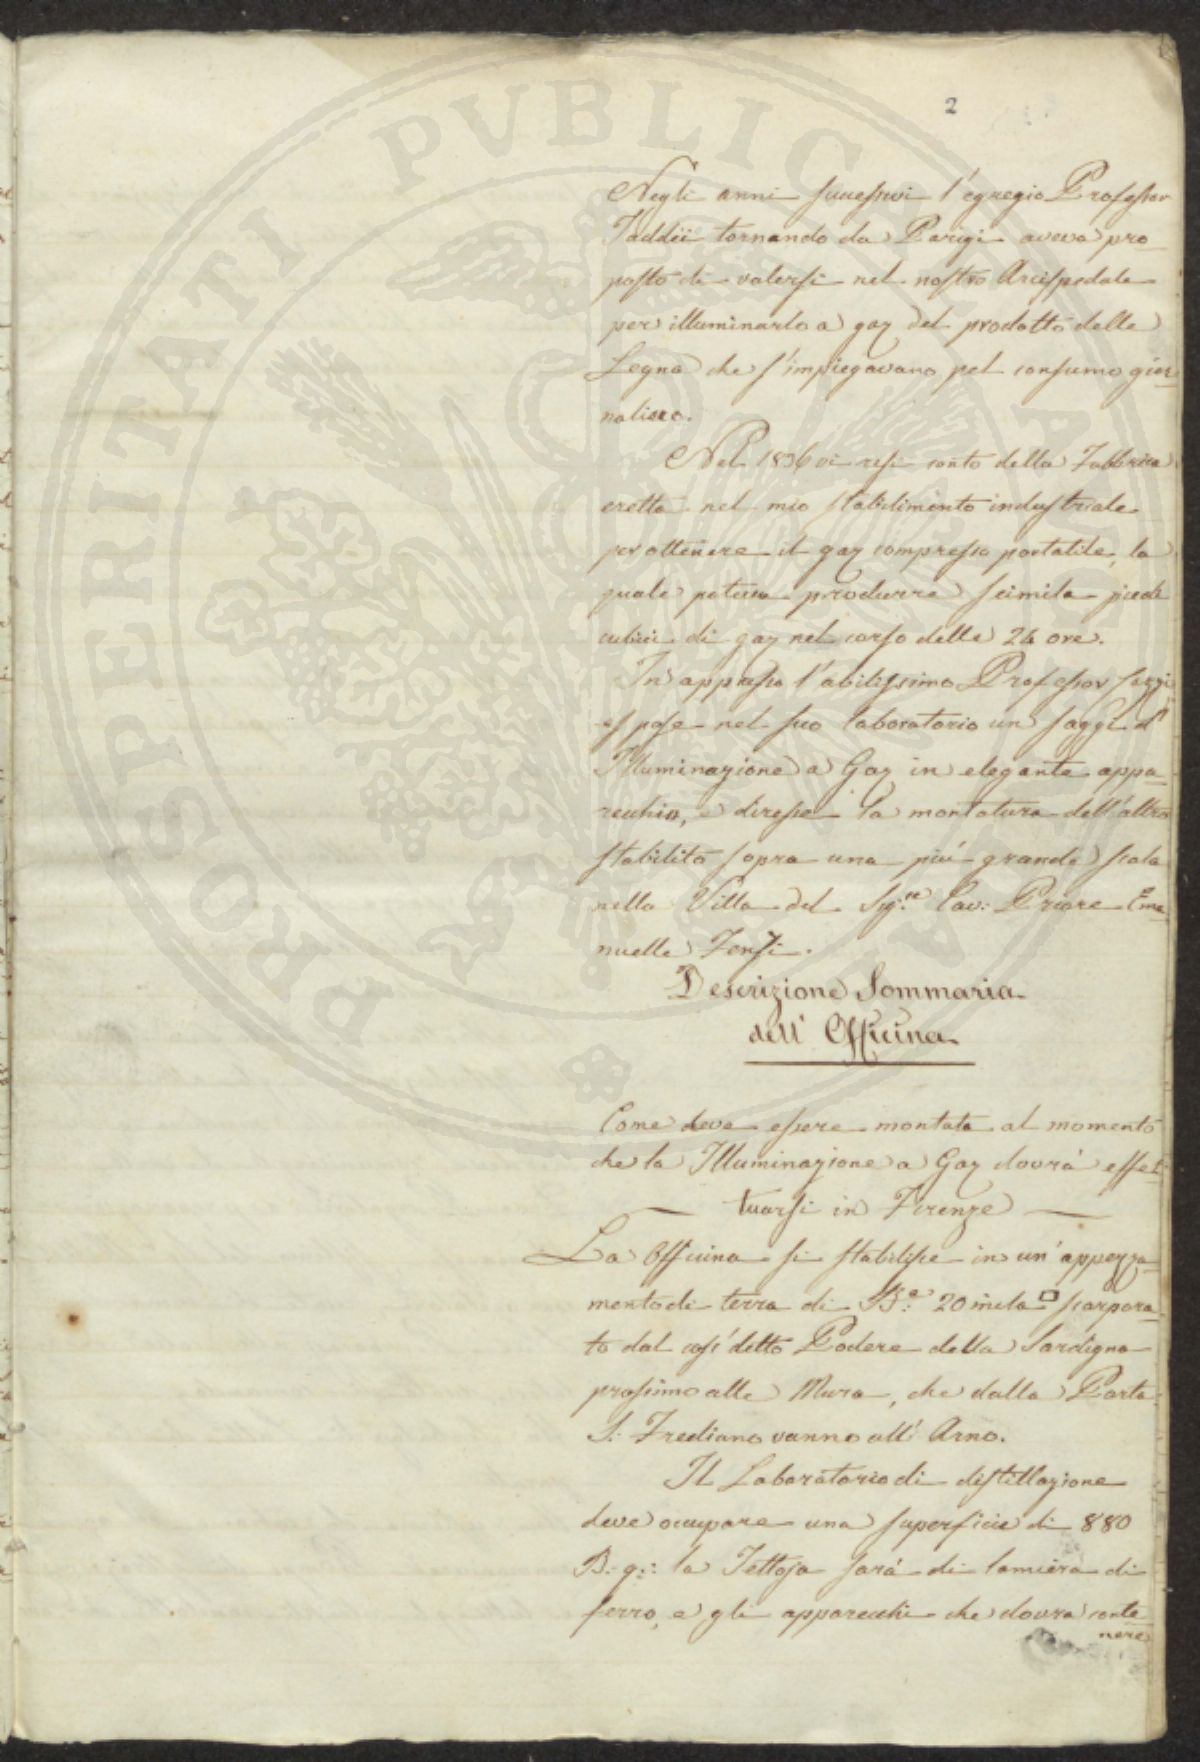 2
Negli anni successivi l'egregio Professor
Taddei tornando da Parigi aveva pro-
posto di valersi nel nostro Arcispedale
per illuminarlo a gaz del prodotto delle
Legna che s'impiegavano pel consumo gior-
naliero.
Nel 1836 vi resi conto della Fabbrica
eretta nel mio stabilimento industriale
per ottenere il gaz compresso portatile, la
quale poteva produrre seimila piedi
cubici di gaz nel corso delle 24 ore.
In appresso l'abilissimo Professor
espose nel suo laboratorio un saggi d'
Illuminazione a Gaz in elegante appa-
recchio, e diresse la montatura dell'altro
stabilito sopra una più grande scala
nella Villa del Sig.re Cav: Priore Ema-
nuelle Fenzi.
Descrizione Sommaria
dell' Officina
Come deve essere montata al momento
che la Illuminazione a Gaz dovrà effet-
tuarsi in Firenze
La Officina si stabilisce in un' appezza-
mento di terra di B.a 20 mila □ scorpora-
to dal così detto Podere della Sardigna
prossimo alle Mura, che dalla Porta
S. Frediano vanno all' Arno.
Il Laboratorio di distillazione
deve occupare una superficie di 880
B. q.: la Tettoja sarà di lamiera di
ferro, e gli apparecchi che dovrà conte
nere
PROSPERITATI PVBLICAE AVGENDAE